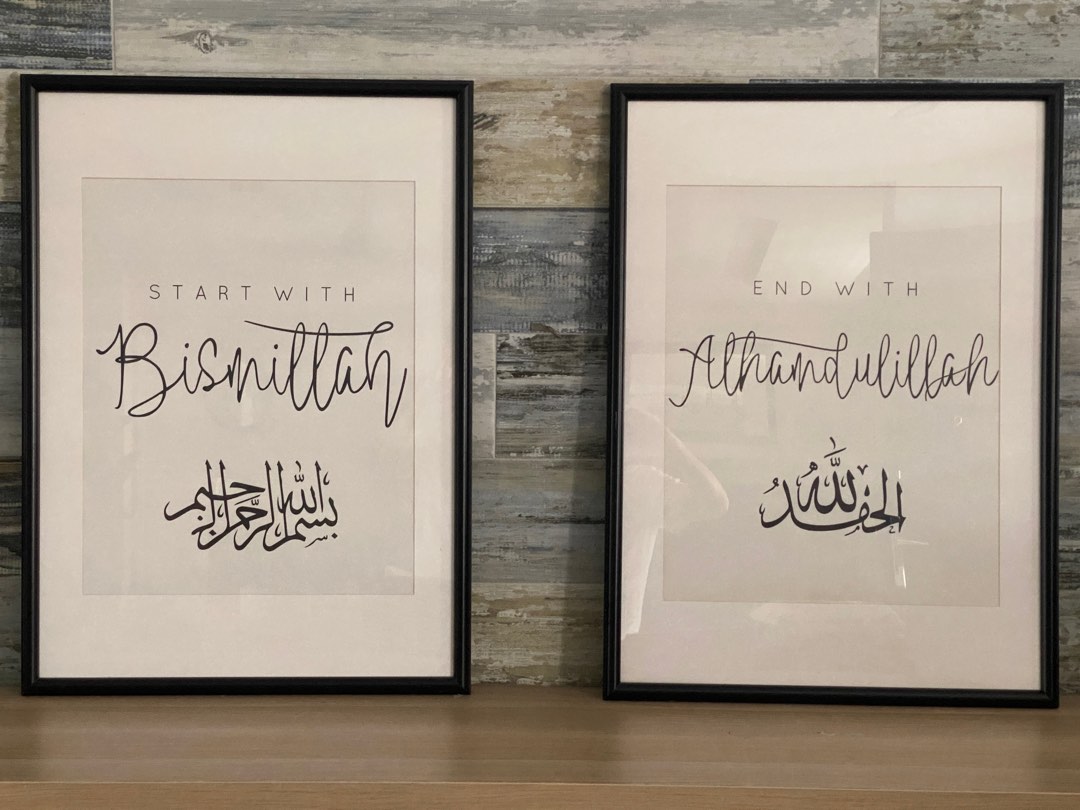 START WITH
Bismillah
بسم الله الرحمن الرحيم
END WITH
Alhamdulillah
الحمد لله